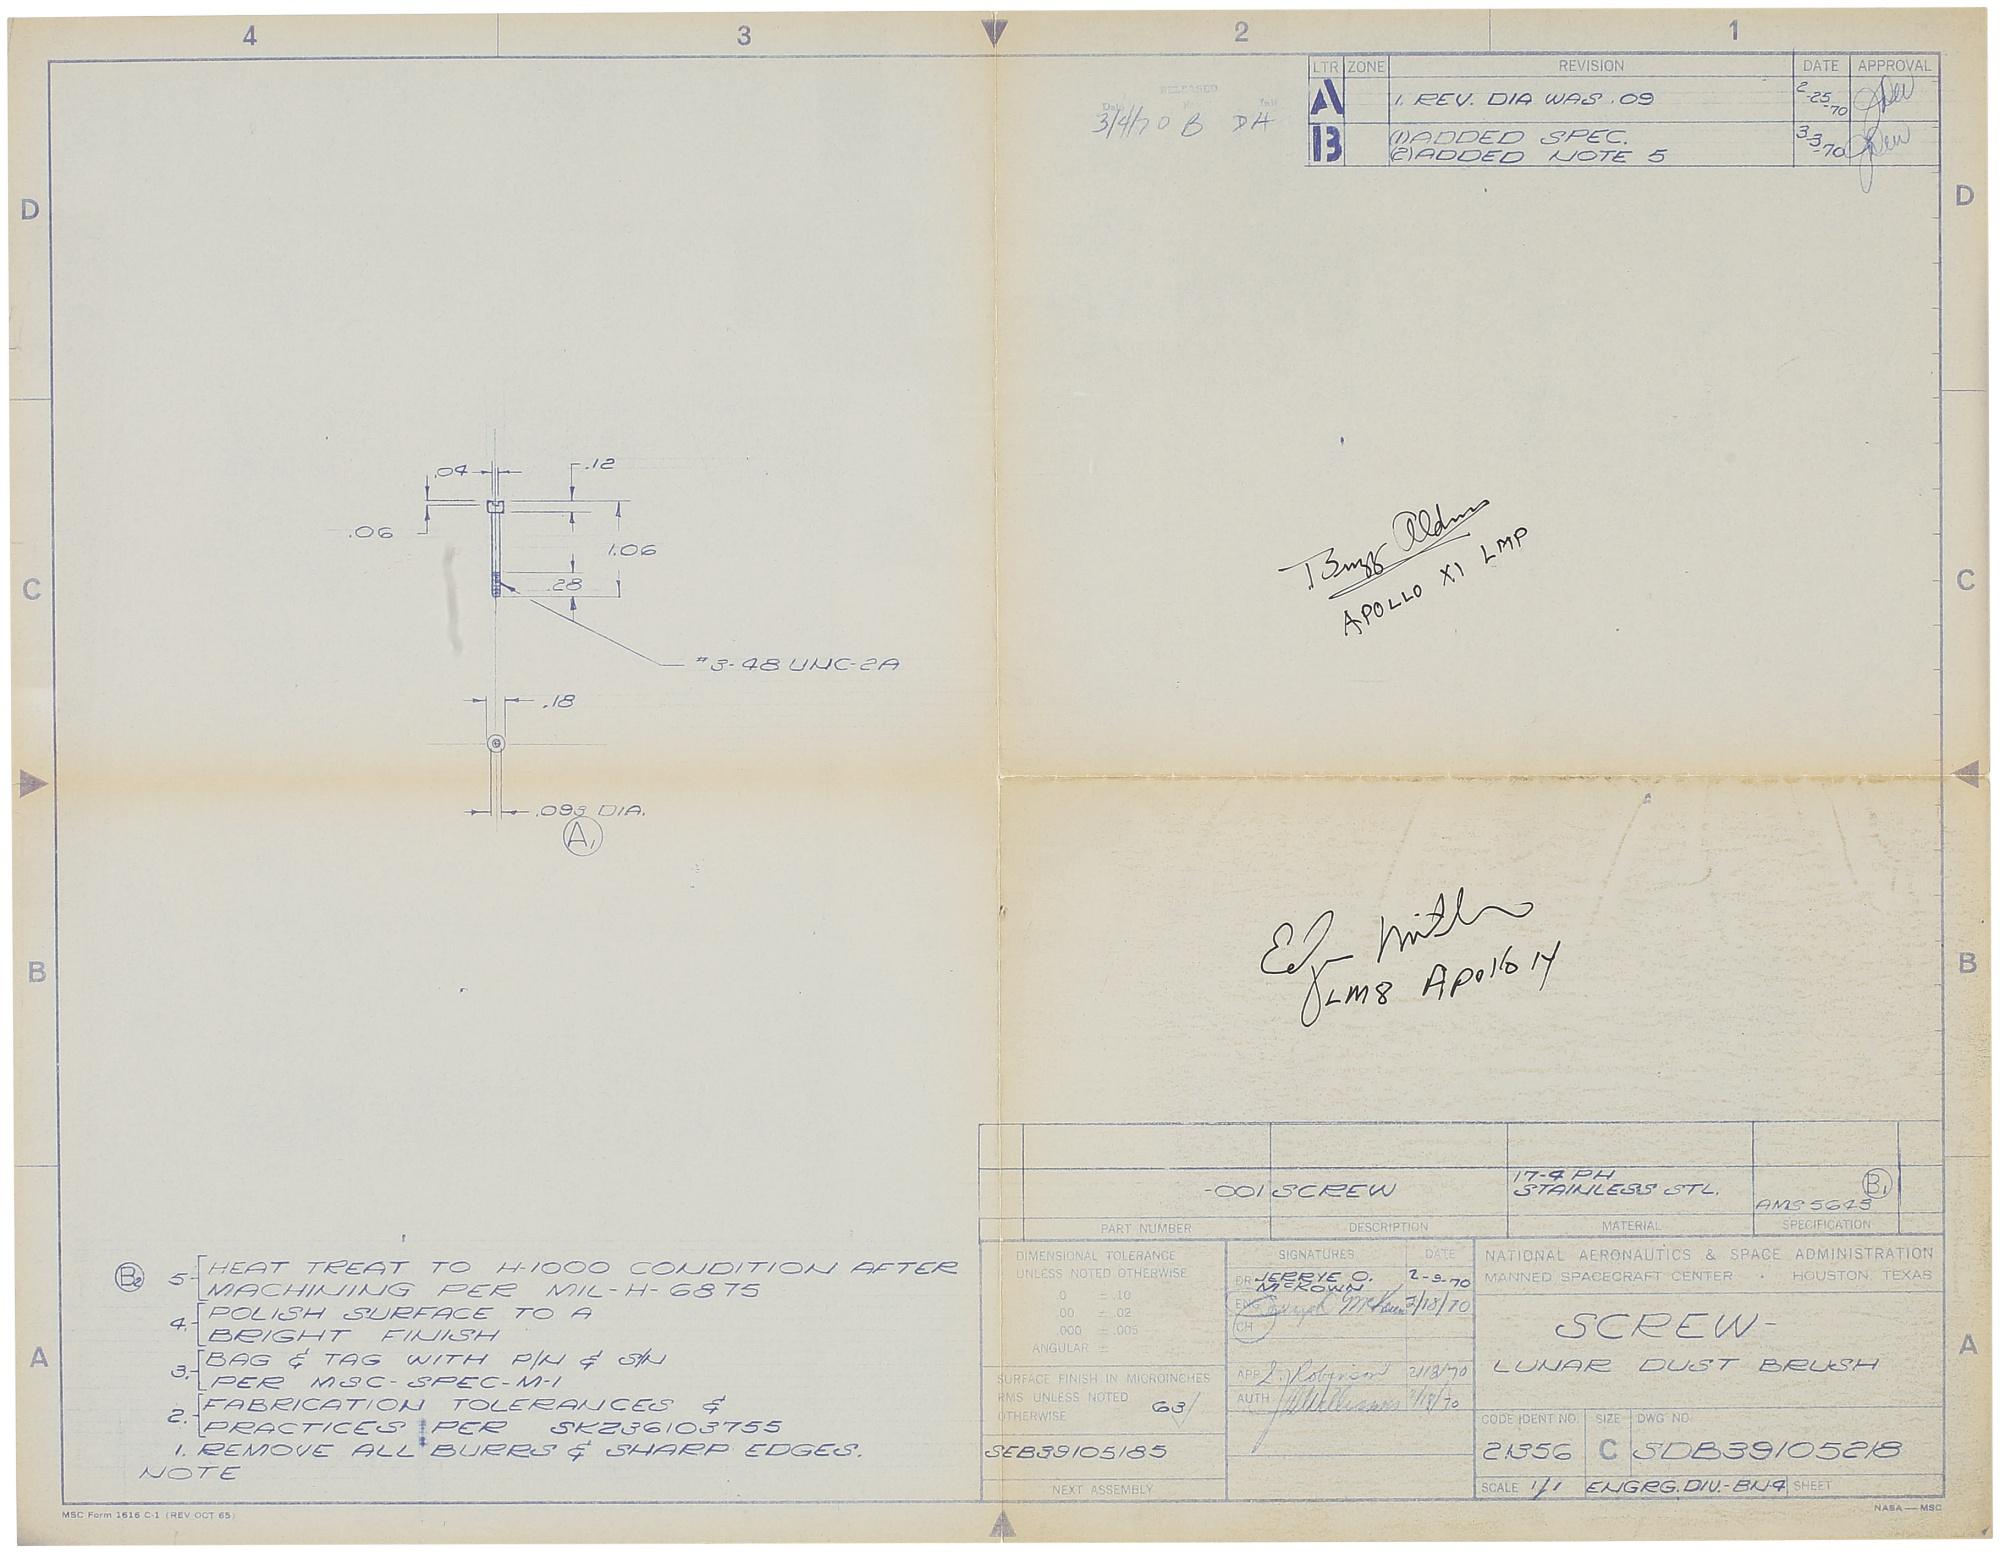 4 3 2 1
LTR ZONE REVISION DATE APPROVAL
A 1. REV. DIA WAS .09 2-25-70
B (1) ADDED SPEC. 3-3-70
(2) ADDED NOTE 5
RELEASED
Date Init
3/4/70 B DH
D D
.04 .12
.06
1.06
.28
C C
#3-48 UNC-2A
.18
.093 DIA.
A1
Buzz Aldrin
APOLLO XI LMP
Edgar Mitchell
LM8 Apollo 14
B B
-001 SCREW 17-4 PH
STAINLESS STL. AMS 5643 B1
PART NUMBER DESCRIPTION MATERIAL SPECIFICATION
B2 5. HEAT TREAT TO H-1000 CONDITION AFTER
MACHINING PER MIL-H-6875
4. POLISH SURFACE TO A
BRIGHT FINISH
3. BAG & TAG WITH P/N & S/N
PER MSC-SPEC-M-1
2. FABRICATION TOLERANCES &
PRACTICES PER SKZ36103755
1. REMOVE ALL BURRS & SHARP EDGES.
NOTE
A A
DIMENSIONAL TOLERANCE
UNLESS NOTED OTHERWISE
.0 ± .10
.00 ± .02
.000 ± .005
ANGULAR ±
SURFACE FINISH IN MICROINCHES
RMS UNLESS NOTED
OTHERWISE 63
SEB39105185
NEXT ASSEMBLY
SIGNATURES DATE
DR JERRYE O. 2-9-70
McKOWN
ENG 2/18/70
CH
APP S. Robinson 2/18/70
AUTH Williams 2/18/70
NATIONAL AERONAUTICS & SPACE ADMINISTRATION
MANNED SPACECRAFT CENTER · HOUSTON, TEXAS
SCREW-
LUNAR DUST BRUSH
CODE IDENT NO. SIZE DWG NO.
21356 C SDB39105218
SCALE 1/1 ENGRG. DIV.-BN4 SHEET
MSC Form 1616 C-1 (REV OCT 65) NASA — MSC